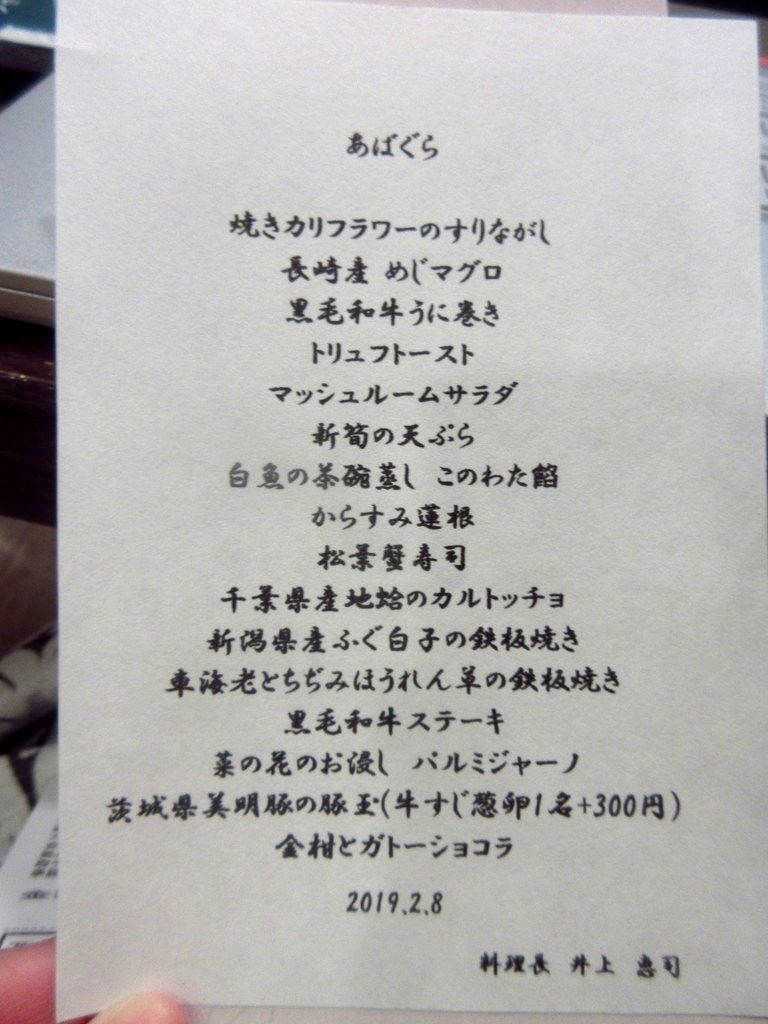 あばぐら
焼きカリフラワーのすりながし
長崎産 めじマグロ
黒毛和牛うに巻き
トリュフトースト
マッシュルームサラダ
新筍の天ぷら
白魚の茶碗蒸し このわた餡
からすみ蓮根
松葉蟹寿司
千葉県産地蛤のカルトッチョ
新潟県産ふぐ白子の鉄板焼き
車海老とちぢみほうれん草の鉄板焼き
黒毛和牛ステーキ
菜の花のお浸し パルミジャーノ
茨城県美明豚の豚玉(牛すじ葱卵1名+300円)
金柑とガトーショコラ
2019.2.8
料理長 井上 恵司